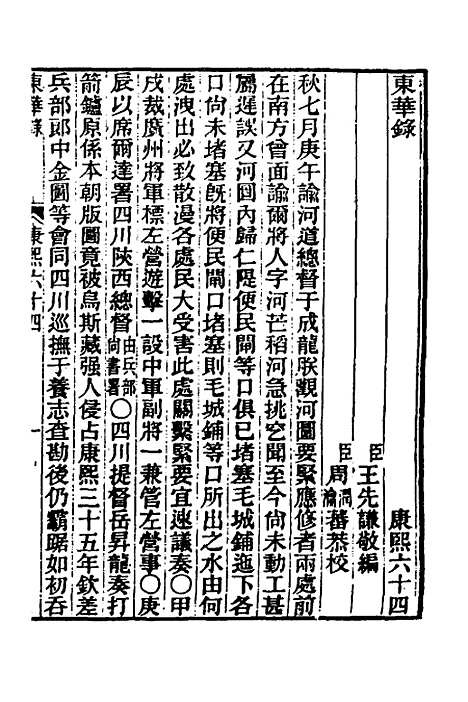 東華錄 康熙六十四
臣王先謙敬編
臣周潤蕃周瀹蕃恭校
秋七月庚午諭河道總督于成龍朕觀河圖要緊應修者兩處前
在南方曾面諭爾將人字河芒稻河急挑它聞至今尙未動工甚
屬遲誤又河圖內歸仁隄便民閘等口俱已堵塞毛城鋪迤下各
口尙未堵塞旣將便民閘口堵塞則毛城鋪等口所出之水由何
處洩出必致散漫各處民大受害此處關繫緊要宜速議奏〇甲
戌裁廣州將軍標左營遊擊一設中軍副將一兼管左營事〇庚
辰以席爾達署四川陝西總督由兵部尙書署〇四川提督岳昇龍奏打
箭鑪原係本朝版圖竟被烏斯藏强人侵占康熙三十五年欽差
兵部郎中金圖等會同四川巡撫于養志查勘後仍霸踞如初吞
東華錄 康熙六十四 一